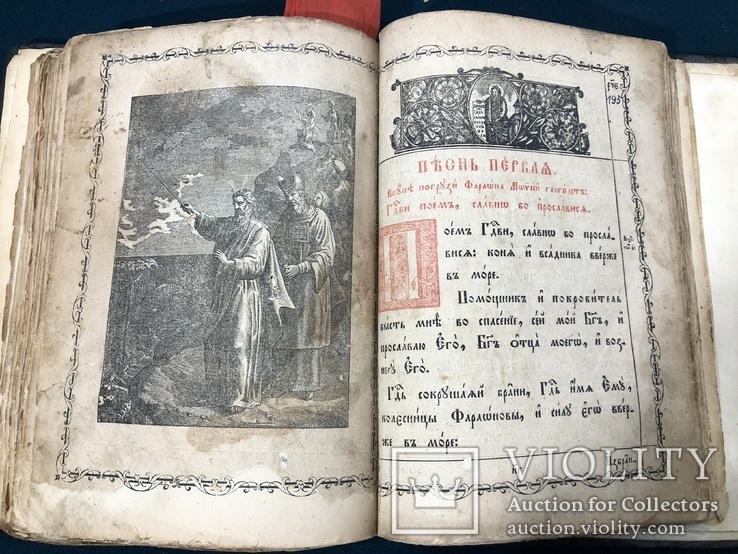 рчє
195
ПѢСНЬ ПЕРВАѦ.
погрѹзи Фараѡна Мѡѵсей глаголетъ:
Гдⷭ҇ви поемъ, славнѡ бо прослависѧ.
Поемъ Гдⷭ҇ви, славнѡ бо просла-
висѧ: конѧ̀ и҆ вса́дника вверже
въ море.
Помощникъ и҆ покровитель
бысть мнѣ во спасеніе, сей мой Бг҃ъ, и҆
прославлю Е҆го̀, Бг҃ъ ѻ҆тца̀ моегѡ̀, и҆ воз-
несꙋ̀ Е҆го̀.
Гдⷭ҇ь сокрꙋшаѧй брани, Гдⷭ҇ь и҆мѧ Е҆мꙋ̀,
колесницы Фараѡновы, и҆ силꙋ е҆гѡ̀ ввер-
же въ море:
и҆збран-
VIOLITY
Auction for Collectors
auction.violity.com